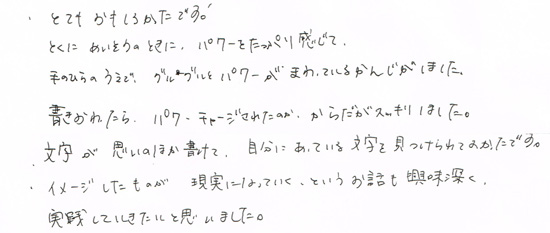 ・とてもおもしろかったです。
とくに あいさつのときに、パワーをたっぷり感じて、
手のひらのうえで、グルグルとパワーが まわっているかんじがしました。
書きおわったら、パワーチャージされたのか、からだがスッキリしました。
・文字が 思いのほか書けて、自分にあっている文字を見つけられてよかったです。
・イメージしたものが 現実になっていく、というお話も 興味深く、
実践していきたいと思いました。